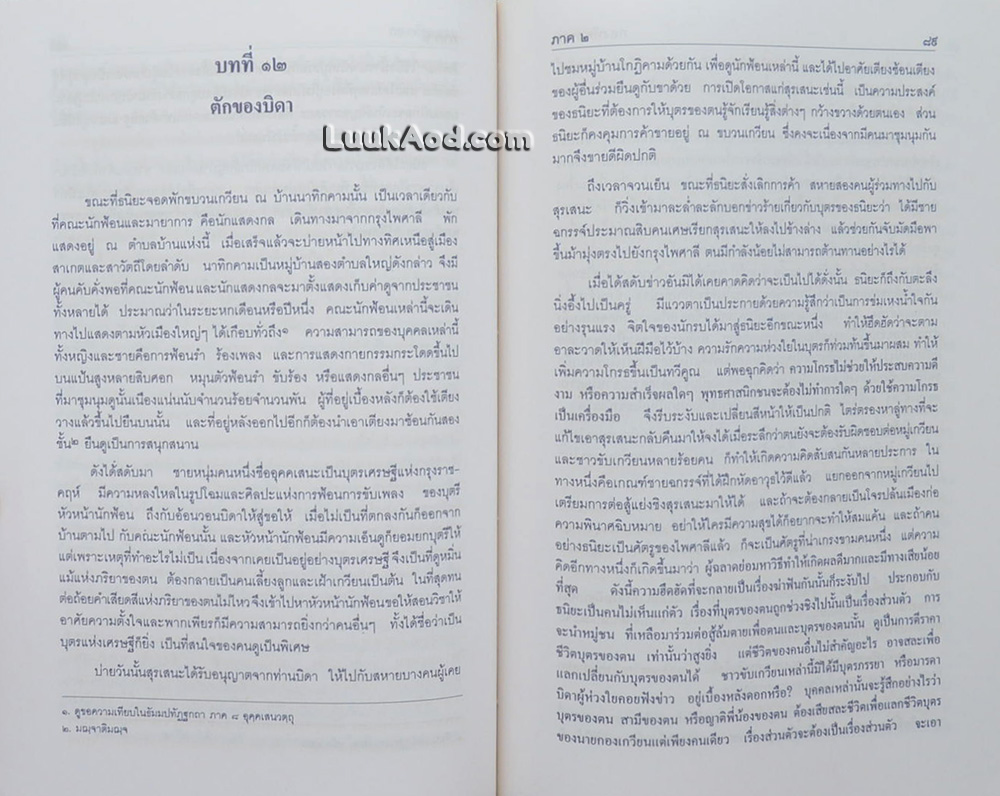 บทที่ ๑๒
ตักของบิดา
LuukAod.com
ขณะที่ธนิยะจอดพักขบวนเกวียน ณ บ้านนาทิกคามนั้น เป็นเวลาเดียวกับ
ที่คณะนักฟ้อนและมายาการ คือนักแสดงกล เดินทางมาจากกรุงไพศาลี พัก
แสดงอยู่ ณ ตำบลบ้านแห่งนี้ เมื่อเสร็จแล้วจะบ่ายหน้าไปทางทิศเหนือสู่เมือง
สาเกตและสาวัตถีโดยลำดับ นาทิกคามเป็นหมู่บ้านสองตำบลใหญ่ดังกล่าว จึงมี
ผู้คนคับคั่งพอที่คณะนักฟ้อน และนักแสดงกลจะมาตั้งแสดงเก็บค่าดูจากประชาชน
ทั้งหลายได้ ประมาณว่าในระยะหกเดือนหรือปีหนึ่ง คณะนักฟ้อนเหล่านี้จะเดิน
ทางไปแสดงตามหัวเมืองใหญ่ๆ ได้เกือบทั่วถึง๑ ความสามารถของบุคคลเหล่านี้
ทั้งหญิงและชายคือการฟ้อนรำ ร้องเพลง และการแสดงกายกรรมกระโดดขึ้นไป
บนแป้นสูงหลายสิบศอก หมุนตัวฟ้อนรำ ขับร้อง หรือแสดงกลอื่นๆ ประชาชน
ที่มาชุมนุมดูนั้นเนืองแน่นนับจำนวนร้อยจำนวนพัน ผู้ที่อยู่เบื้องหลังก็ต้องใช้เตียง
วางแล้วขึ้นไปยืนบนนั้น และที่อยู่หลังออกไปอีกก็ต้องนำเอาเตียงมาซ้อนกันสอง
ชั้น๒ ยืนดูเป็นการสนุกสนาน
ดังได้สดับมา ชายหนุ่มคนหนึ่งชื่ออุคคเสนะเป็นบุตรเศรษฐีแห่งกรุงราช-
คฤห์ มีความหลงใหลในรูปโฉมและศิลปะแห่งการฟ้อนการขับเพลง ของบุตรี
หัวหน้านักฟ้อน ถึงกับอ้อนวอนบิดาให้สู่ขอให้ เมื่อไม่เป็นที่ตกลงกันก็ออกจาก
บ้านตามไป กับคณะนักฟ้อนนั้น และหัวหน้านักฟ้อนมีความเอ็นดูก็ยอมยกบุตรีให้
แต่เพราะเหตุที่ทำอะไรไม่เป็น เนื่องจากเคยเป็นอยู่อย่างบุตรเศรษฐี จึงเป็นที่ดูหมิ่น
แม้แห่งภริยาของตน ต้องกลายเป็นคนเลี้ยงลูกและเฝ้าเกวียนเป็นต้น ในที่สุดทน
ต่อถ้อยคำเสียดสีแห่งภริยาของตนไม่ไหว จึงเข้าไปหาหัวหน้านักฟ้อนขอให้สอนวิชาให้
อาศัยความตั้งใจและพากเพียรก็มีความสามารถยิ่งกว่าคนอื่นๆ ทั้งได้ชื่อว่าเป็น
บุตรแห่งเศรษฐีก็ยิ่ง เป็นที่สนใจของคนดูเป็นพิเศษ
บ่ายวันนั้นสุรเสนะได้รับอนุญาตจากท่านบิดา ให้ไปกับสหายบางคนผู้เคย
๑. ดูขอความเทียบในธัมมปทัฏฐกถา ภาค ๘ อุคฺคเสนวตฺถุ
๒. มญฺจาติมญฺจ
ภาค ๒ ๘๙
ไปชมหมู่บ้านโกฏิคามด้วยกัน เพื่อดูนักฟ้อนเหล่านี้ และได้ไปอาศัยเตียงซ้อนเตียง
ของผู้อื่นร่วมยืนดูกับเขาด้วย การเปิดโอกาสแก่สุรเสนะเช่นนี้ เป็นความประสงค์
ของธนิยะที่ต้องการให้บุตรของตนรู้จักเรียนรู้สิ่งต่างๆ กว้างขวางด้วยตนเอง ส่วน
ธนิยะก็คงคุมการค้าขายอยู่ ณ ขบวนเกวียน ซึ่งคงจะเนื่องจากมีคนมาชุมนุมกัน
มากจึงขายดีผิดปกติ
ถึงเวลาจวนเย็น ขณะที่ธนิยะสั่งเลิกการค้า สหายสองคนผู้ร่วมทางไปกับ
สุรเสนะ ก็วิ่งเข้ามาละล่ำละลักบอกข่าวร้ายเกี่ยวกับบุตรของธนิยะว่า ได้มีชาย
ฉกรรจ์ประมาณสิบคนเศษเรียกสุรเสนะให้ลงไปข้างล่าง แล้วช่วยกันจับมัดมือพา
ขึ้นม้ามุ่งตรงไปยังกรุงไพศาลี ตนมีกำลังน้อยไม่สามารถต้านทานอย่างไรได้
เมื่อได้สดับข่าวอันมิได้เคยคาดคิดว่าจะเป็นไปได้ดั่งนั้น ธนิยะก็ถึงกับตะลึง
นิ่งอึ้งไปเป็นครู่ มีแววตาเป็นประกายด้วยความรู้สึกว่าเป็นการข่มเหงน้ำใจกัน
อย่างรุนแรง จิตใจของนักรบได้มาสู่ธนิยะอีกขณะหนึ่ง ทำให้ฮึดฮัดว่าจะตาม
อาละวาดให้เห็นฝีมือไว้บ้าง ความรักความห่วงใยในบุตรก็ท่วมทันขึ้นมาผสม ทำให้
เพิ่มความโกรธขึ้นเป็นทวีคูณ แต่พอฉุกคิดว่า ความโกรธไม่ช่วยให้ประสบความดี
งาม หรือความสำเร็จผลใดๆ พุทธศาสนิกชนจะต้องไม่ทำการใดๆ ด้วยใช้ความโกรธ
เป็นเครื่องมือ จึงรีบระงับและเปลี่ยนสีหน้าให้เป็นปกติ ไตร่ตรองหาลู่ทางที่จะ
แก้ไขเอาสุรเสนะกลับคืนมาให้จงได้เมื่อระลึกว่าตนยังจะต้องรับผิดชอบต่อหมู่เกวียน
และชาวขับเกวียนหลายร้อยคน ก็ทำให้เกิดความคิดสับสนกันหลายประการ ใน
ทางหนึ่งคือเกณฑ์ชายฉกรรจ์ที่ได้ฝึกหัดอาวุธไว้ดีแล้ว แยกออกจากหมู่เกวียนไป
เตรียมการต่อสู้แย่งชิงสุรเสนะมาให้ได้ และถ้าจะต้องกลายเป็นโจรปล้นเมืองก่อ
ความพินาศฉิบหมาย อย่าให้ใครมีความสุขได้ก็อยากจะทำให้สมแค้น และถ้าคน
อย่างธนิยะเป็นศัตรูของไพศาลีแล้ว ก็จะเป็นศัตรูที่น่าเกรงขามคนหนึ่ง แต่ความ
คิดอีกทางหนึ่งก็เกิดขึ้นมาว่า ผู้ฉลาดย่อมหาวิธีทำให้เกิดผลดีมากและมีทางเสียน้อย
ที่สุด ดังนี้ความฮึดฮัดที่จะกลายเป็นเรื่องฆ่าฟันกันนั้นก็ระงับไป ประกอบกับ
ธนิยะเป็นคนไม่เห็นแก่ตัว เรื่องที่บุตรของตนถูกช่วงชิงไปนั้นเป็นเรื่องส่วนตัว การ
จะนำหมู่ชน ที่เหลือมาร่วมต่อสู้ล้มตายเพื่อตนและบุตรของตนนั้น ดูเป็นการตีราคา
ชีวิตบุตรของตน เท่านั้นว่าสูงยิ่ง แต่ชีวิตของคนอื่นไม่สำคัญอะไร อาจสละเพื่อ
แลกเปลี่ยนกับบุตรของตนได้ ชาวขับเกวียนเหล่านี้มิได้มีบุตรภรรยา หรือมารดา
บิดาผู้ห่วงใยคอยฟังข่าว อยู่เบื้องหลังดอกหรือ? บุคคลเหล่านั้นจะรู้สึกอย่างไรว่า
บุตรของตน สามีของตน หรือญาติพี่น้องของตน ต้องเสียสละชีวิตเพื่อแลกชีวิตบุตร
ของนายกองเกวียนแต่เพียงคนเดียว เรื่องส่วนตัวจะต้องเป็นเรื่องส่วนตัว จะเอา